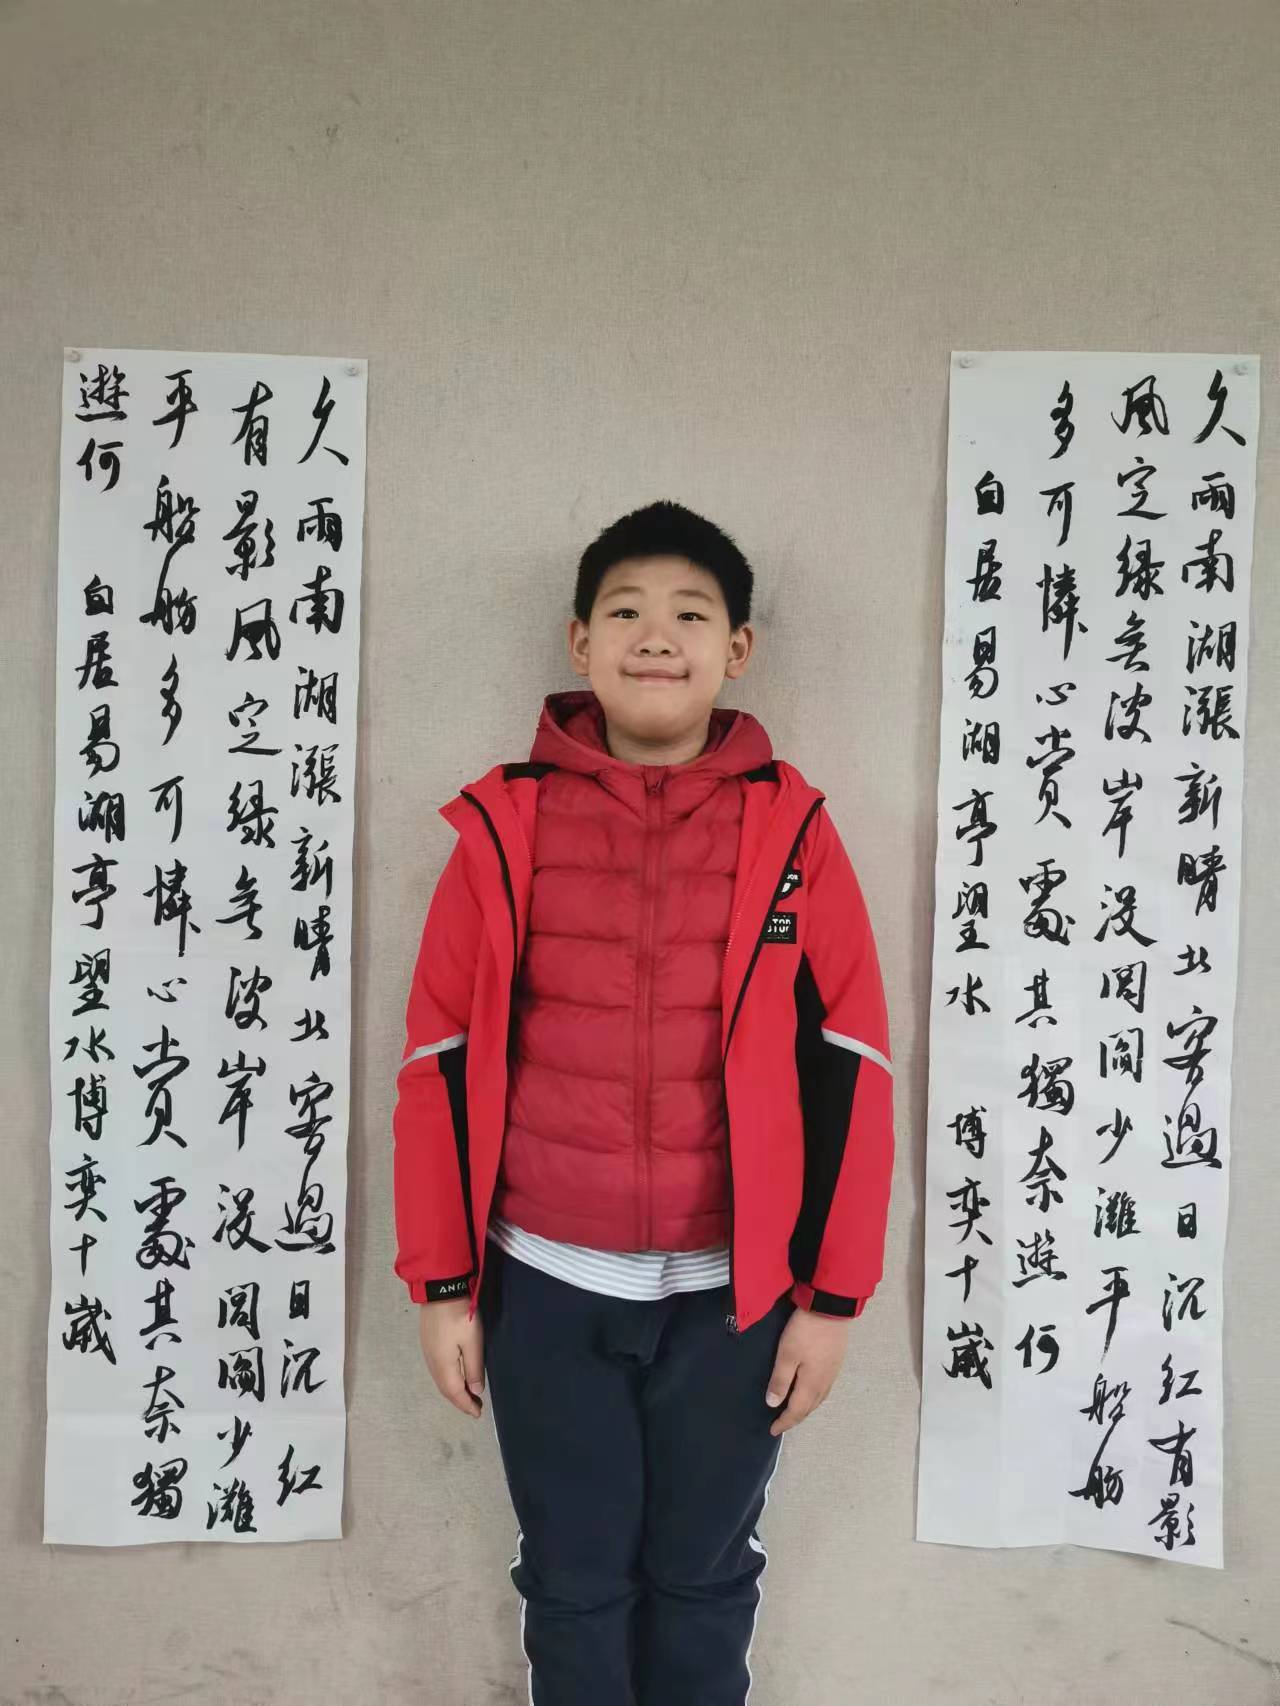 久雨南湖漲新晴北客過日沉红
有影風定緑無波岸没閭閻少灘
平船舫多可憐心賞處其奈獨
遊何 白居易湖亭望水博奕十歲
STOP
久雨南湖漲新晴北客過日沉红有影
風定緑無波岸没閭閻少灘平船舫
多可憐心賞處其奈獨遊何
白居易湖亭望水 博奕十歲